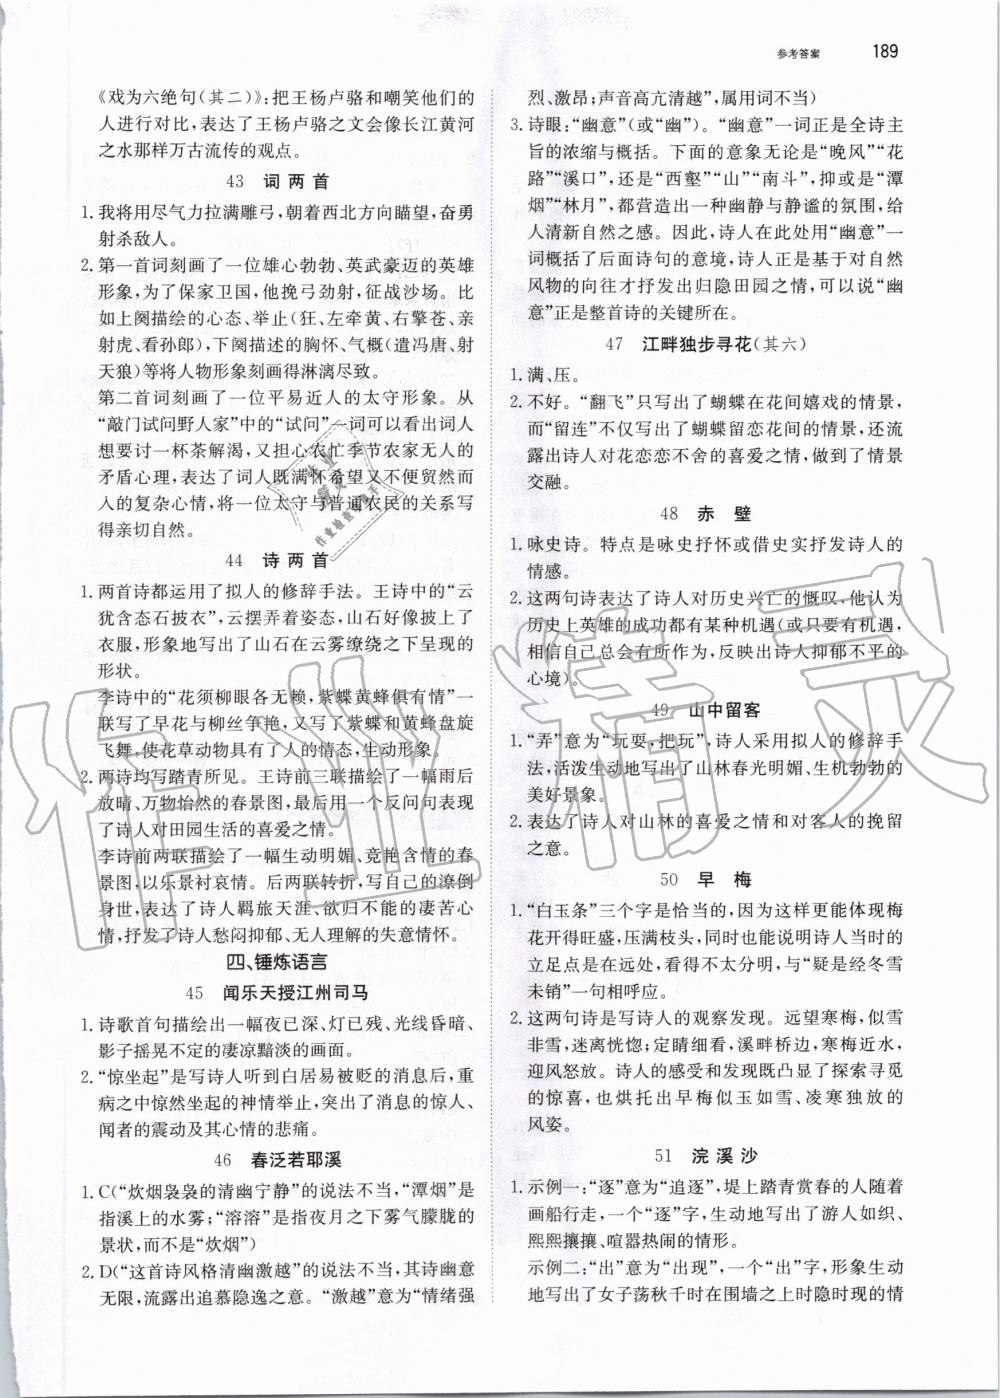 参考答案 189
《戏为六绝句(其二)》:把王杨卢骆和嘲笑他们的
人进行对比,表达了王杨卢骆之文会像长江黄河
之水那样万古流传的观点。
43 词两首
1. 我将用尽气力拉满雕弓,朝着西北方向瞄望,奋勇
射杀敌人。
2. 第一首词刻画了一位雄心勃勃、英武豪迈的英雄
形象,为了保家卫国,他挽弓劲射,征战沙场。比
如上阕描绘的心态、举止(狂、左牵黄、右擎苍、亲
射虎、看孙郎),下阕描述的胸怀、气慨(遣冯唐、射
天狼)等将人物形象刻画得淋漓尽致。
第二首词刻画了一位平易近人的太守形象。从
“敲门试问野人家”中的“试问”一词可以看出词人
想要讨一杯茶解渴,又担心农忙季节农家无人的
矛盾心理,表达了词人既满怀希望又不便贸然
的复杂心情,将一位太守与普通农民的关系写
得亲切自然。
44 诗两首
1. 两首诗都运用了拟人的修辞手法。王诗中的“云
犹含态石披衣”,云摆弄着姿态,山石好像披上了
衣服,形象地写出了山石在云雾缭绕之下呈现的
形状。
李诗中的“花须柳眼各无赖,紫蝶黄蜂俱有情”一
联写了早花与柳丝争艳,又写了紫蝶和黄蜂盘旋
飞舞,使花草动物具有了人的情态,生动形象。
2. 两诗均写踏青所见。王诗前三联描绘了一幅雨后
放晴、万物怡然的春景图,最后用一个反问句表现
了诗人对田园生活的喜爱之情。
李诗前两联描绘了一幅生动明媚、竞艳含情的春
景图,以乐景衬哀情。后两联转折,写自己的潦倒
身世,表达了诗人羁旅天涯、欲归不能的凄苦心
情,抒发了诗人愁闷抑郁、无人理解的失意情怀。
四、锤炼语言
45 闻乐天授江州司马
1. 诗歌首句描绘出一幅夜已深、灯已残、光线昏暗、
影子摇晃不定的凄凉黯淡的画面。
2. “惊坐起”是写诗人听到白居易被贬的消息后,重
病之中惊然坐起的神情举止,突出了消息的惊人、
闻者的震动及其心情的悲痛。
46 春泛若耶溪
1. C(“炊烟袅袅的清幽宁静”的说法不当,“潭烟”是
指溪上的水雾;“溶溶”是指夜月之下雾气朦胧的
景状,而不是“炊烟”)
2. D(“这首诗风格清幽激越”的说法不当,其诗幽意
无限,流露出追慕隐逸之意。“激越”意为“情绪强
烈、激昂;声音高亢清越”,属用词不当)
3. 诗眼:“幽意”(或“幽”)。“幽意”一词正是全诗主
旨的浓缩与概括。下面的意象无论是“晚风”“花
路”“溪口”,还是“西壑”“山”“南斗”,抑或是“潭
烟”“林月”,都营造出一种幽静与静谧的氛围,给
人清新自然之感。因此,诗人在此处用“幽意”一
词概括了后面诗句的意境,诗人正是基于对自然
风物的向往才抒发出归隐田园之情,可以说“幽
意”正是整首诗的关键所在。
47 江畔独步寻花(其六)
1. 满、压。
2. 不好。“翻飞”只写出了蝴蝶在花间嬉戏的情景,
而“留连”不仅写出了蝴蝶留恋花间的情景,还流
露出诗人对花恋恋不舍的喜爱之情,做到了情景
交融。
48 赤壁
1. 咏史诗。特点是咏史抒怀或借史实抒发诗人的
情感。
2. 这两句诗表达了诗人对历史兴亡的慨叹,他认为
历史上英雄的成功都有某种机遇(或只要有机遇,
相信自己总会有所作为,反映出诗人抑郁不平的
心境)。
49 山中留客
1. “弄”意为“玩耍,把玩”,诗人采用拟人的修辞手
法,活泼生动地写出了山林春光明媚、生机勃勃的
美好景象。
2. 表达了诗人对山林的喜爱之情和对客人的挽留
之意。
50 早梅
1. “白玉条”三个字是恰当的,因为这样更能体现梅
花开得旺盛,压满枝头,同时也说明了诗人当时的
立足点是在远处,看得不太分明,与“疑是经冬雪
未销”一句相呼应。
2. 这两句诗是写诗人的观察发现。远望寒梅,似雪
非雪,迷离恍惚;定睛细看,溪畔桥边,寒梅近水,
迎风怒放。诗人的感受和发现既凸显了探索寻觅
的惊喜,也烘托出早梅似玉如雪、凌寒独放的
风姿。
51 浣溪沙
1. 示例一:“逐”意为“追逐”,堤上踏青赏春的人随着
画船行走,一个“逐”字,生动地写出了游人如织、
熙熙攘攘、喧嚣热闹的情形。
示例二:“出”意为“出现”,一个“出”字,形象生动
地写出了女子荡秋千时在围墙之上时隐时现的情
作业精灵